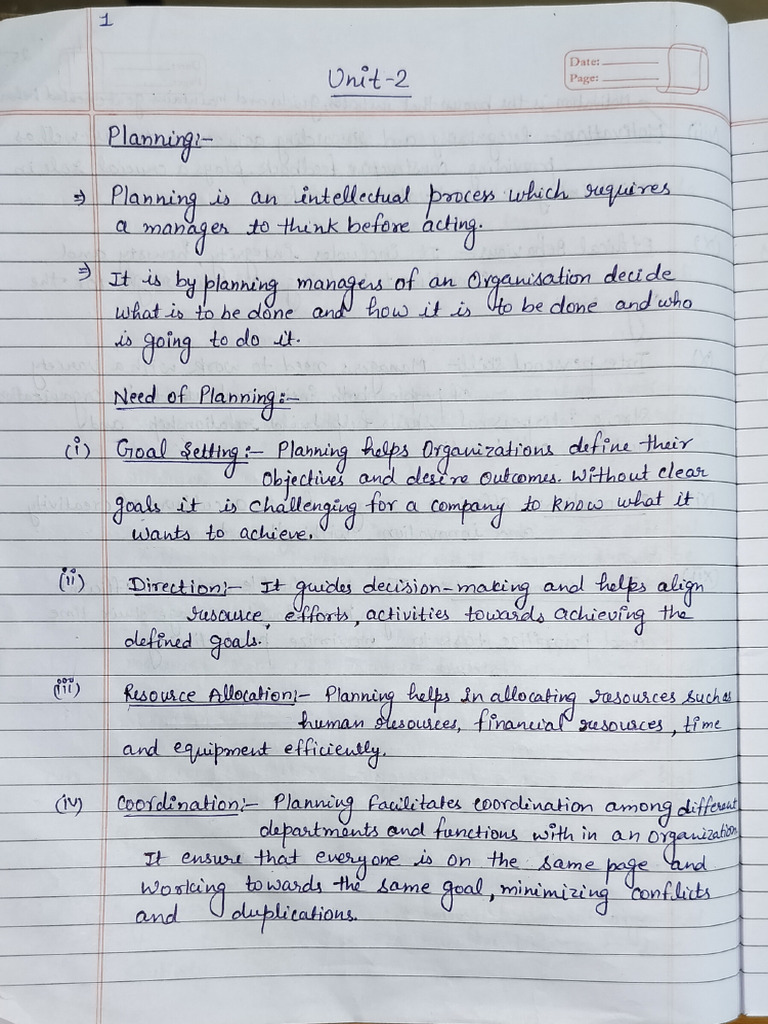 1
Unit-2
Date:
Page:
Planning:-
⇒ Planning is an intellectual process which requires
a manager to think before acting.
⇒ It is by planning managers of an Organisation decide
what is to be done and how it is to be done and who
is going to do it.
Need of Planning:-
(i) Goal Setting:- Planning helps Organizations define their
objectives and desire outcomes. Without clear
goals it is challenging for a company to know what it
wants to achieve.
(ii) Direction:- It guides decision-making and helps align
resource, efforts, activities towards achieving the
defined goals.
(iii) Resource Allocation:- Planning helps in allocating resources such as
human resources, financial resources, time
and equipment efficiently.
(iv) Coordination:- Planning facilitates coordination among different
departments and functions with in an organization
It ensure that everyone is on the same page and
working towards the same goal, minimizing conflicts
and duplications.